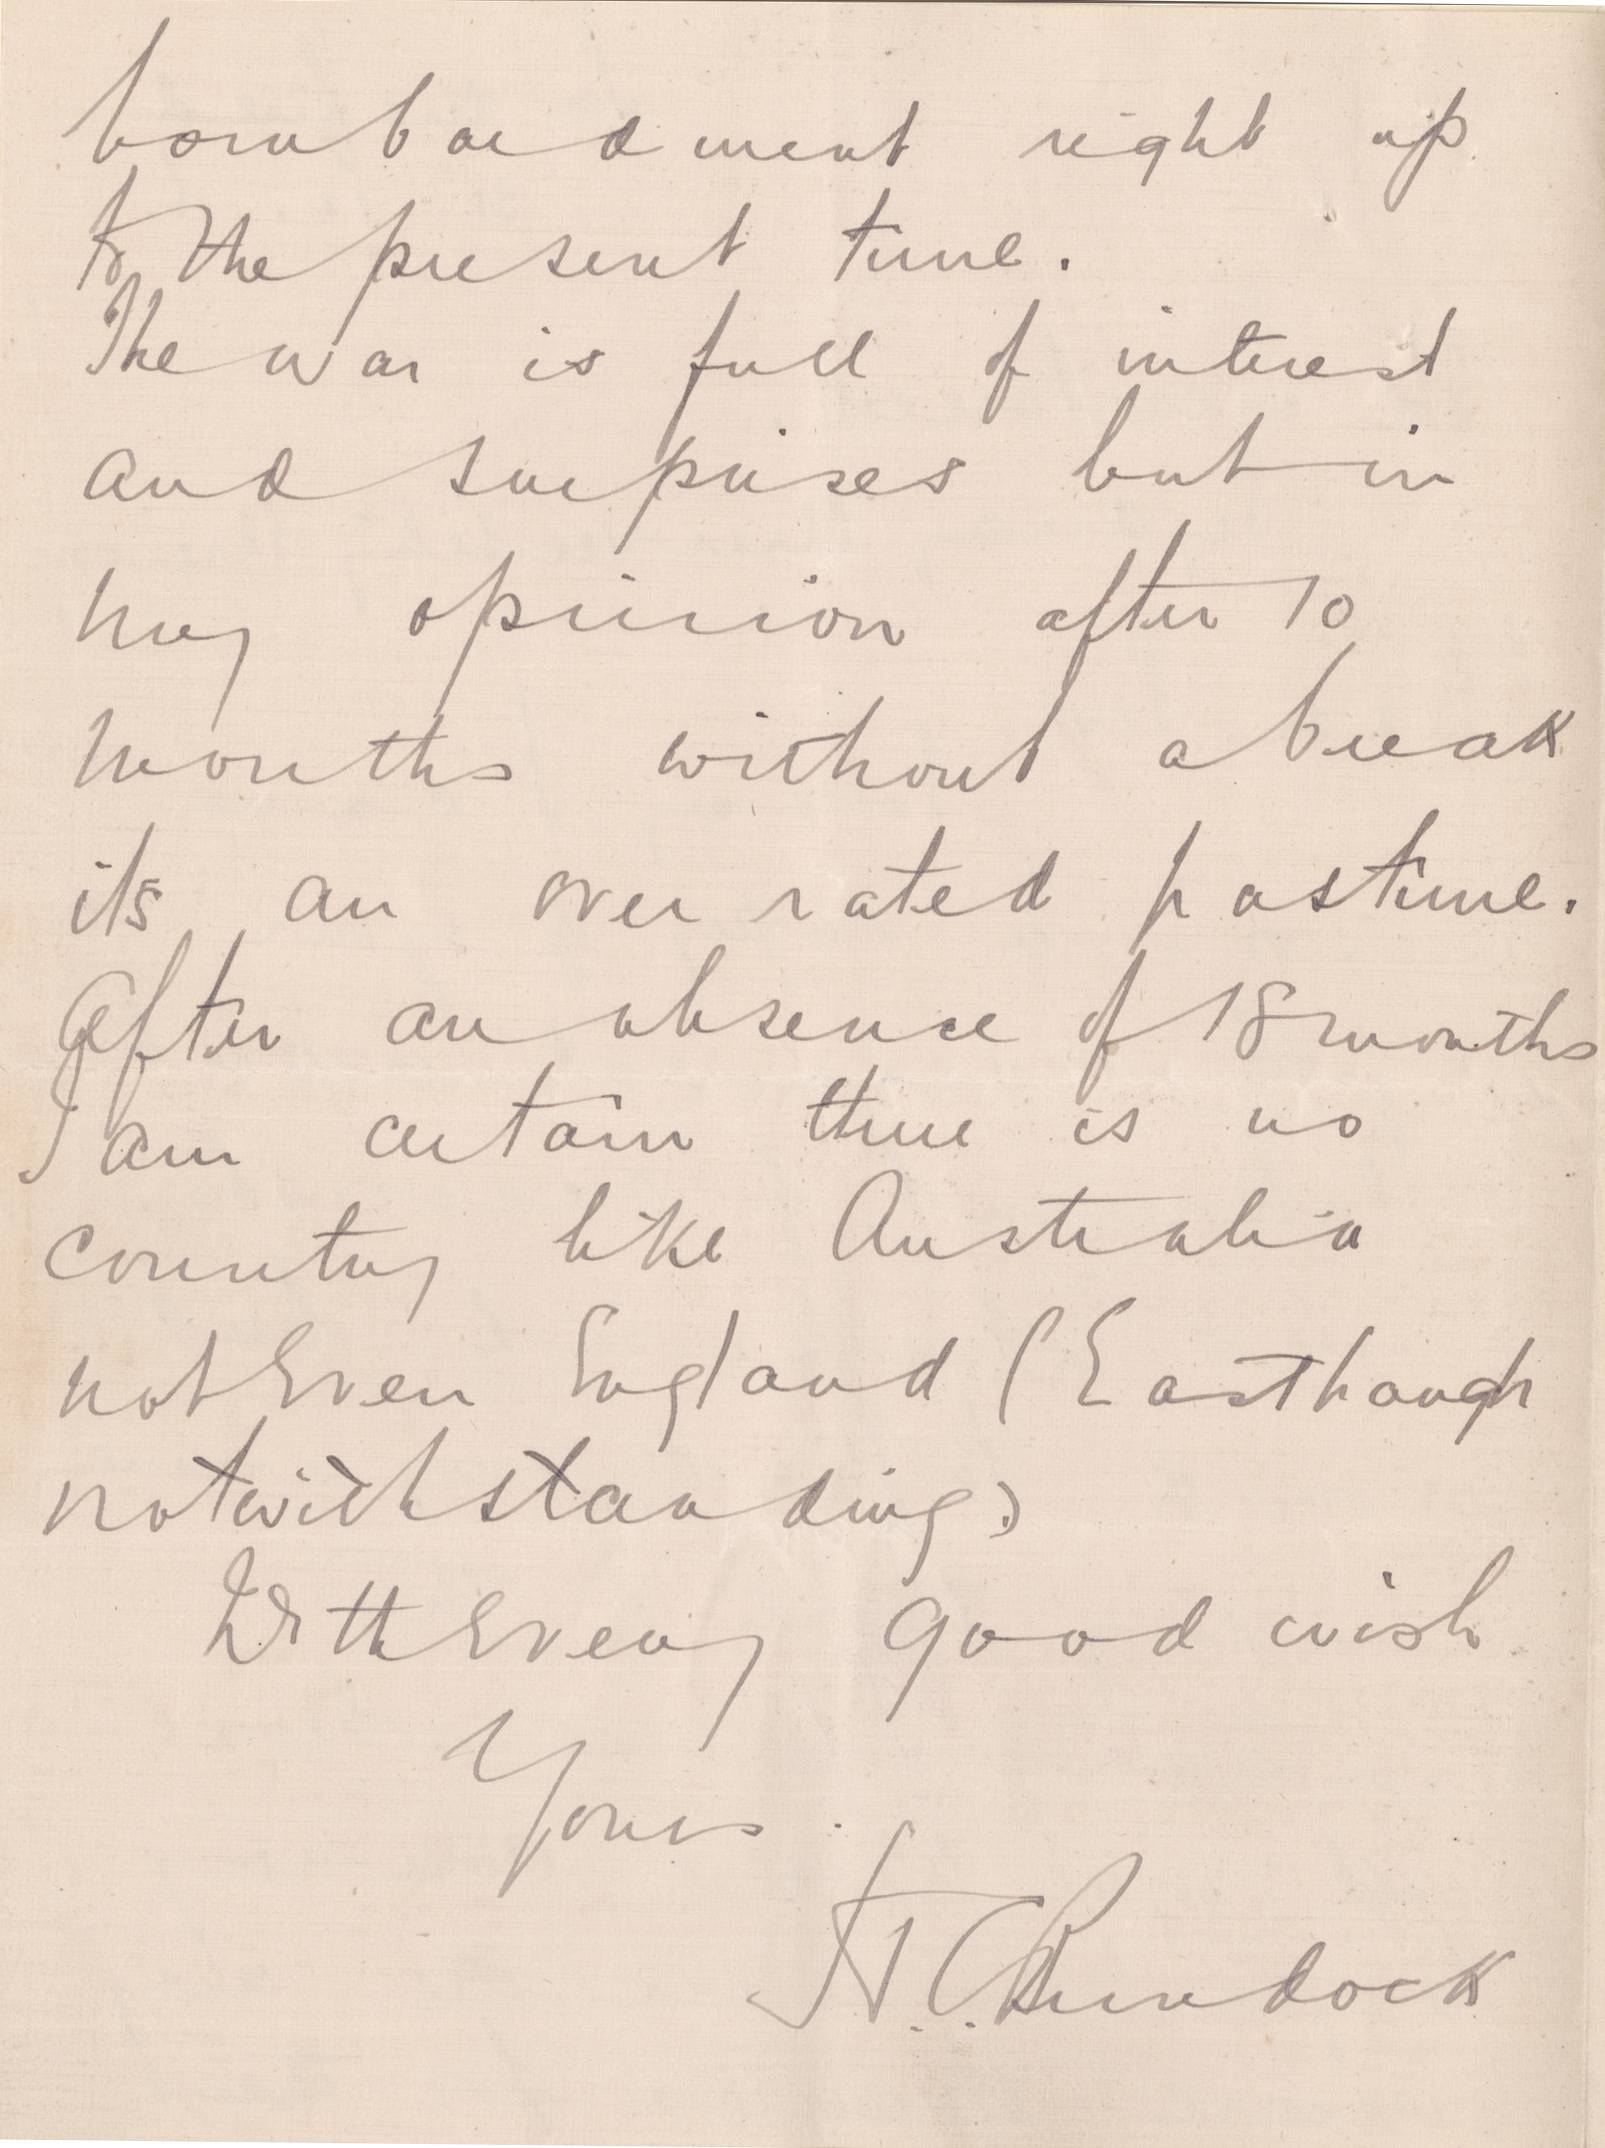 bombardment right up
to the present time.
The war is full of interest
and surprises but in
my opinion after 10
months without a break
its an over rated pastime.
After an absence of 18 months
I am certain there is no
country like Australia
not Even England (Easthaugh
notwithstanding)
With Every good wish
Yours.
H.C. Rundock